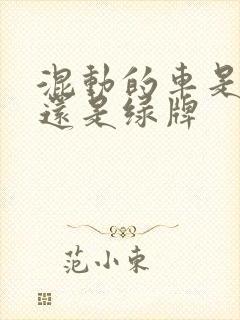 混動的車是
還是绿牌
范小東